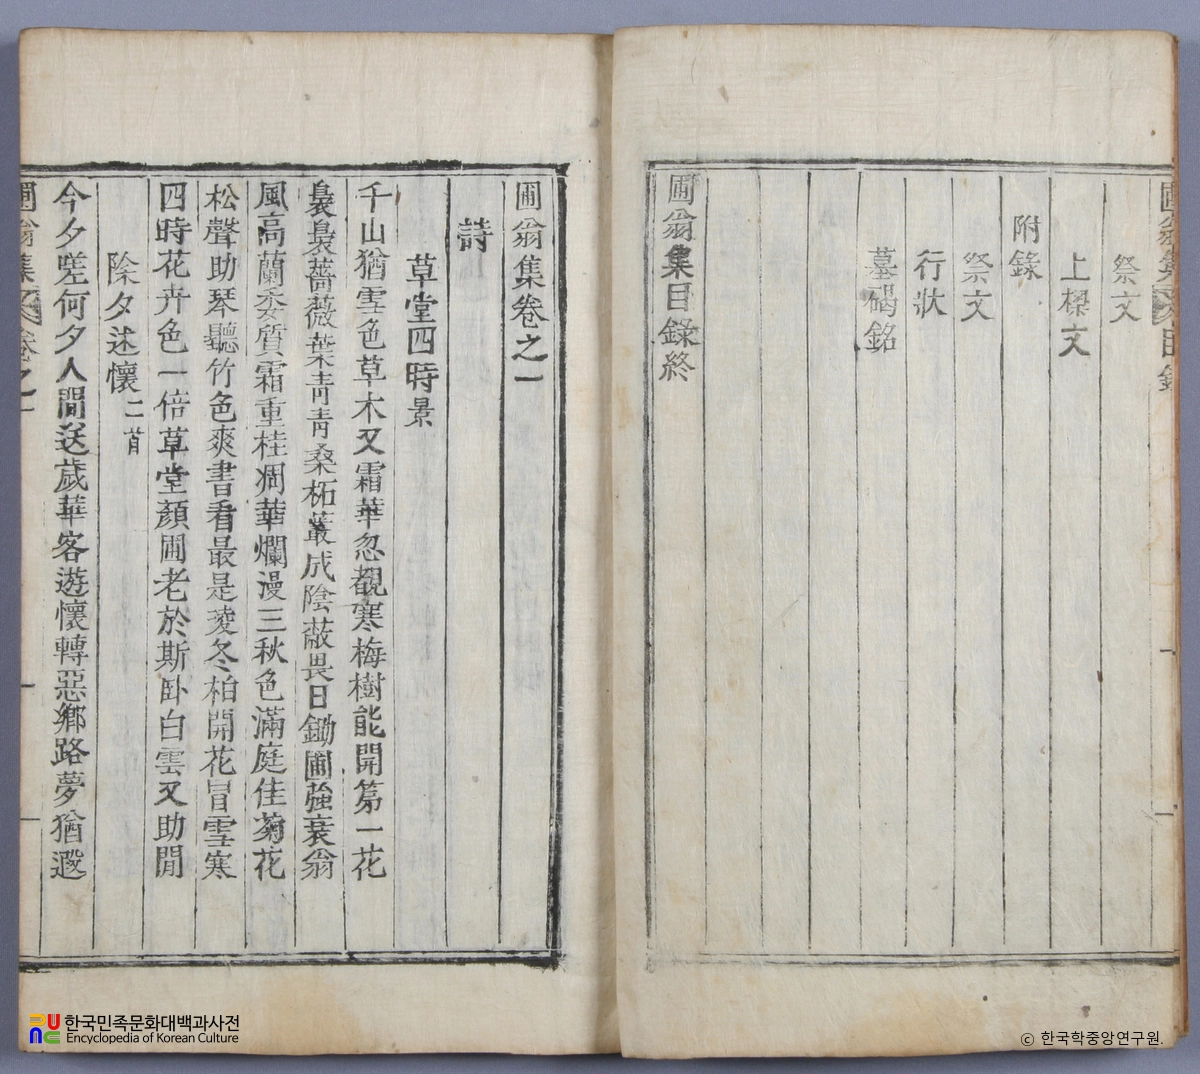 祭文
上樑文
附錄
祭文
行狀
墓碣銘
圃翁集目錄終
圃翁集卷之一
詩
草堂四時景
千山猶雪色草木又霜華忽覩寒梅樹能開第一花
裊裊薔薇葉靑靑桑柘叢成陰蔽畏日鋤圃強衰翁
風高蘭委質霜重桂凋華爛漫三秋色滿庭佳菊花
松聲助琴聽竹色爽書看最是凌冬柏開花冒雪寒
四時花卉色一倍草堂顏圃老於斯卧白雲又助閒
除夕述懷 二首
今夕嗟何夕人間送歲華客遊懷轉惡鄕路夢猶遐
圃翁集 卷之一
한국민족문화대백과사전
Encyclopedia of Korean Culture
ⓒ 한국학중앙연구원.